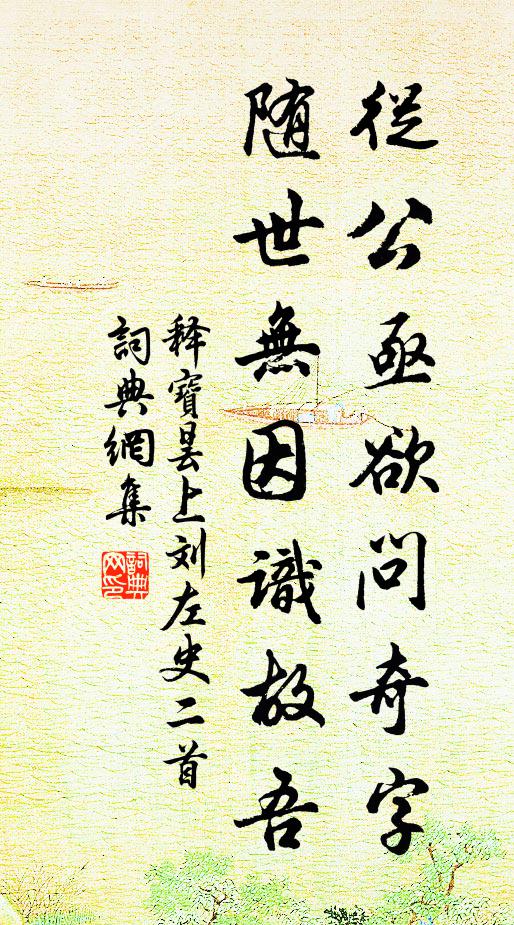 從公亟欲问奇字
随世無因識故吾
释寶昙上刘左史二首
詞典網集
詞典网印